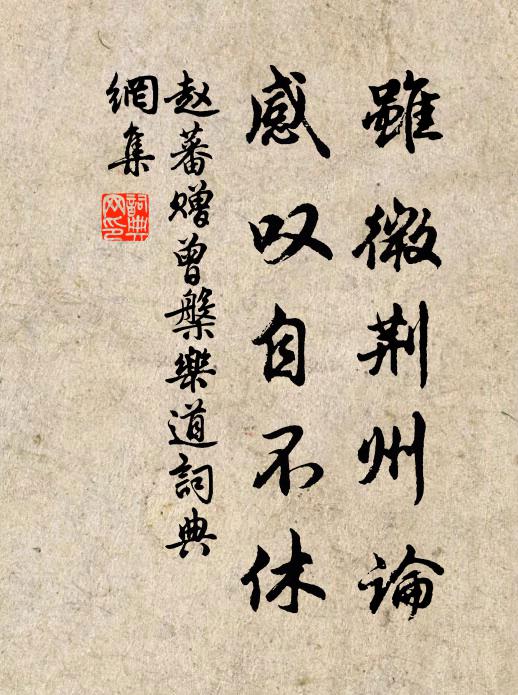 雖微荆州論
感叹自不休
赵蕃赠曾槃樂道詞典
網集
詞典
网印